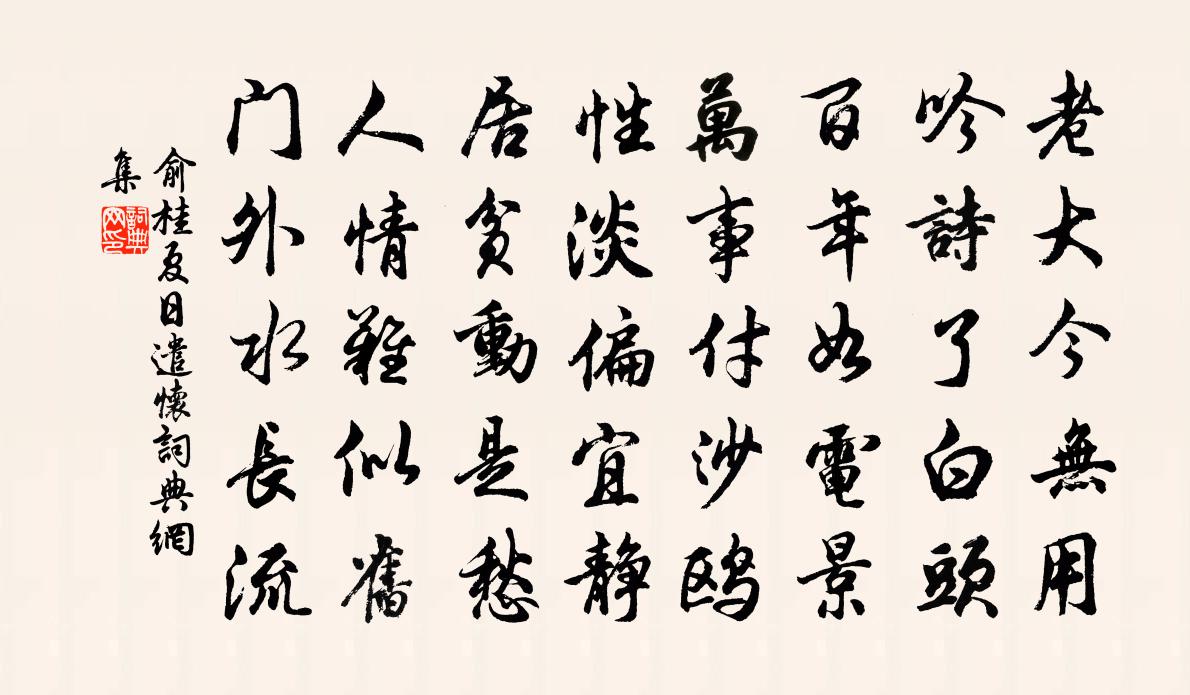 老大今無用
吟詩了白頭
百年如電景
萬事付沙鸥
性淡偏宜静
居貧動是愁
人情難似舊
门外水長流
俞桂夏日遣懷詞典網
集
詞典
网印